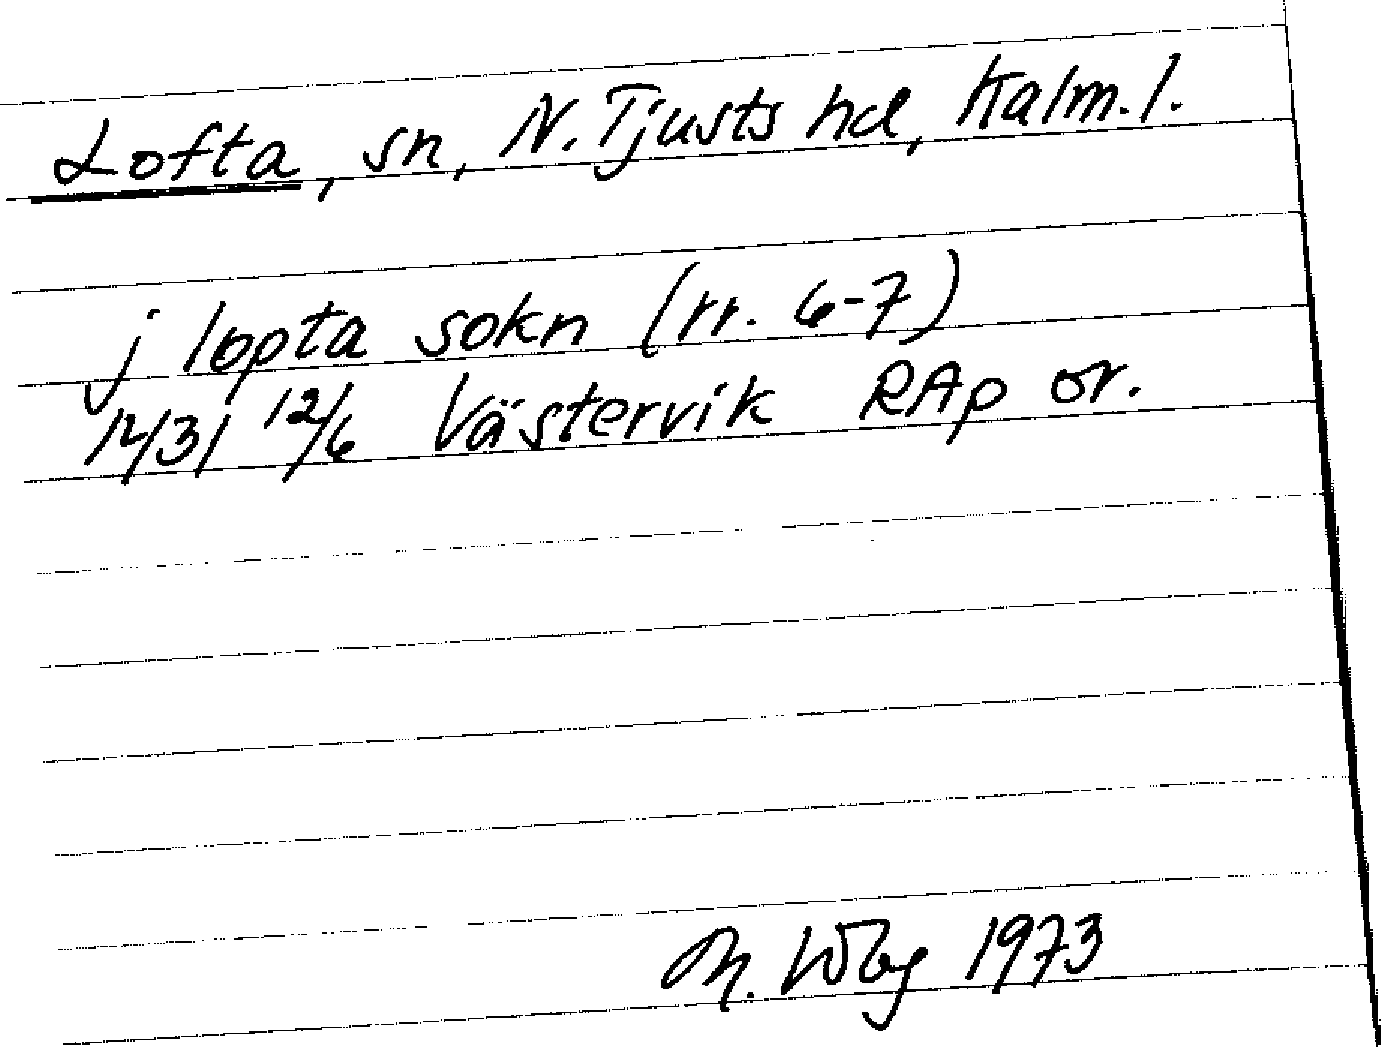 Lofta, sn, N. Tjusts hd, Kalm. l.
j lopta sokn (rr. 6-7)
1431 12/6 Västervik RAp or.
M. Wbg 1973